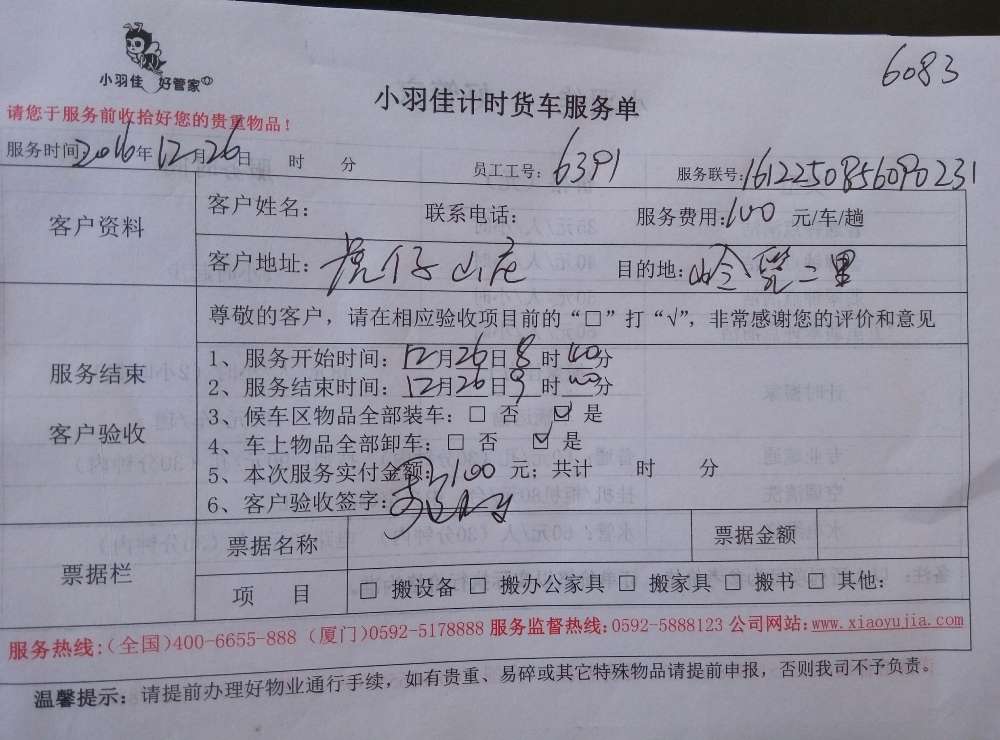 6083
小羽佳 好管家
小羽佳计时货车服务单
请您于服务前收拾好您的贵重物品!
服务时间2016年12月26日 时 分 员工工号: 6391 服务联号:1612250856090231
客户资料
客户姓名: 联系电话: 服务费用:100 元/车/趟
客户地址: 虎仔山庄 目的地: 二里
服务结束
客户验收
尊敬的客户，请在相应验收项目前的“□”打“√”，非常感谢您的评价和意见
1、服务开始时间: 12月26日8时40分
2、服务结束时间: 12月26日9时40分
3、候车区物品全部装车: □ 否 ☑ 是
4、车上物品全部卸车: □ 否 ☑ 是
5、本次服务实付金额: 100 元; 共计 时 分
6、客户验收签字:
票据栏
票据名称 票据金额
项 目 □ 搬设备 □ 搬办公家具 □ 搬家具 □ 搬书 □ 其他:
服务热线:(全国)400-6655-888 (厦门)0592-5178888 服务监督热线:0592-5888123 公司网站:www.xiaoyujia.com
温馨提示: 请提前办理好物业通行手续，如有贵重、易碎或其它特殊物品请提前申报，否则我司不予负责。